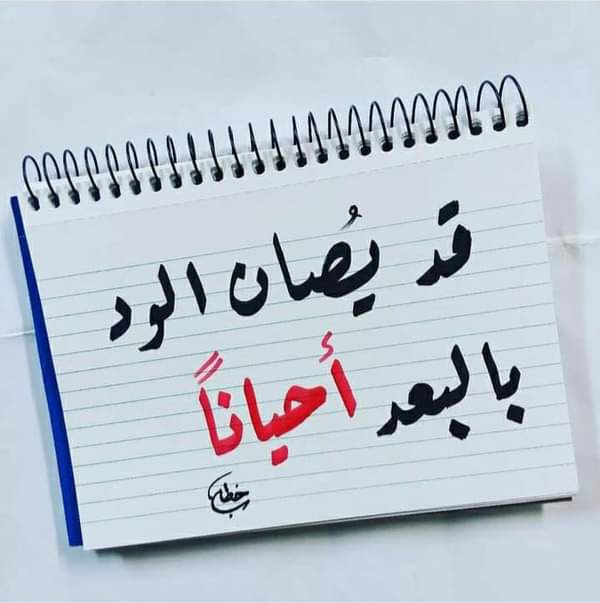 قد يُصان الود
بالبعد أحياناً
خطاب